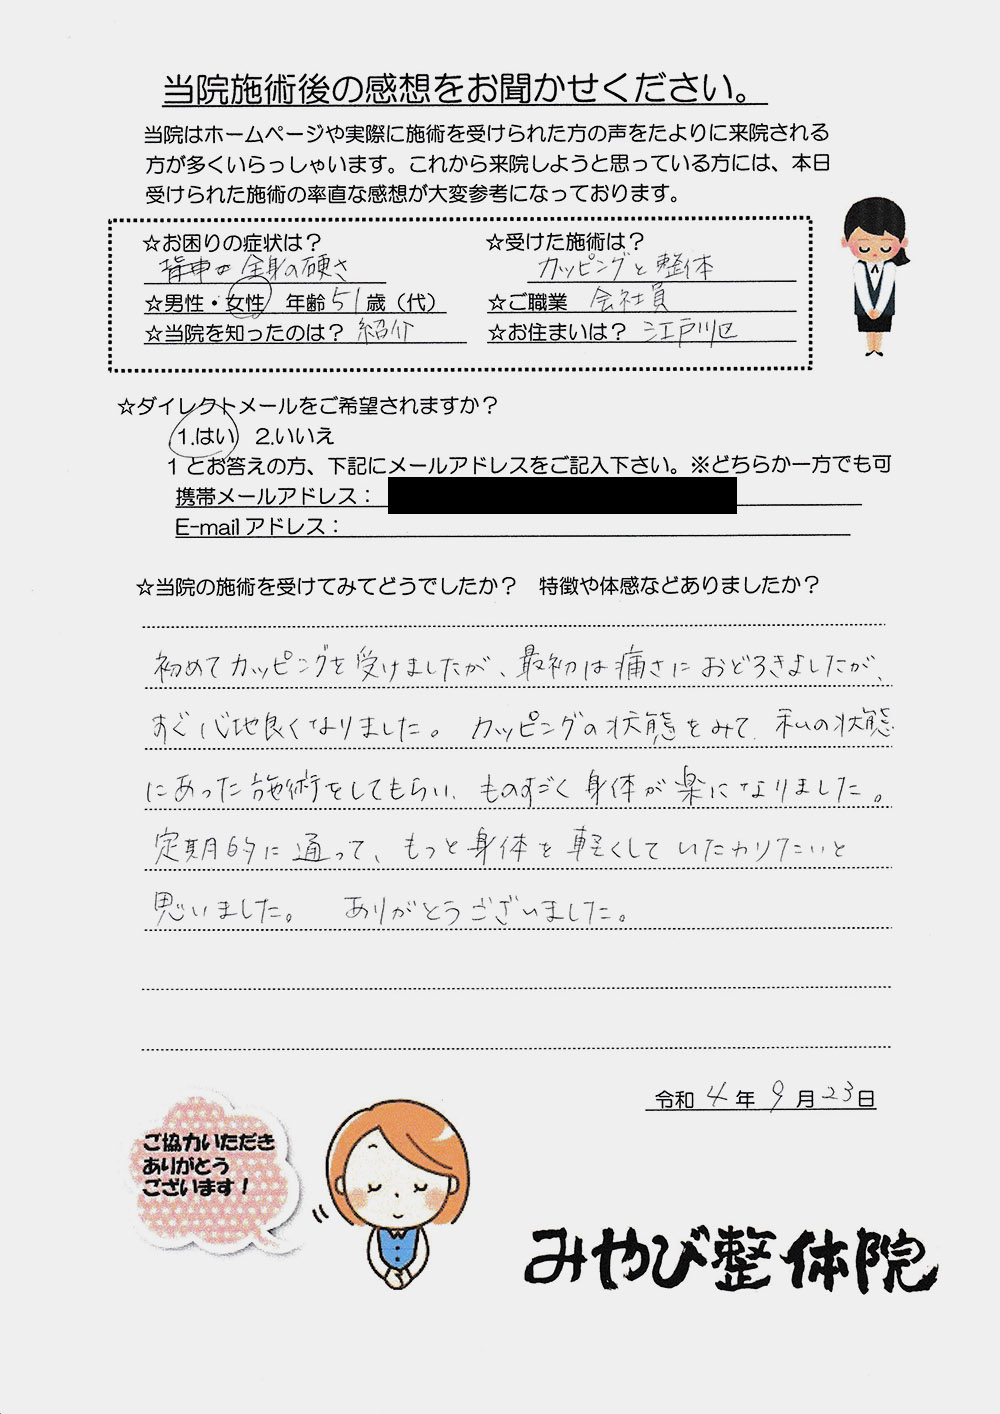 当院施術後の感想をお聞かせください。
当院はホームページや実際に施術を受けられた方の声をたよりに来院される
方が多くいらっしゃいます。これから来院しようと思っている方には、本日
受けられた施術の率直な感想が大変参考になっております。
☆お困りの症状は？ ☆受けた施術は？
全身の硬さ カッピングと整体
☆男性・女性 年齢 51 歳（代） ☆ご職業 会社員
☆当院を知ったのは？ 紹介 ☆お住まいは？ 江戸川区
☆ダイレクトメールをご希望されますか？
1.はい 2.いいえ
1 とお答えの方、下記にメールアドレスをご記入下さい。※どちらか一方でも可
携帯メールアドレス：
E-mail アドレス：
☆当院の施術を受けてみてどうでしたか？ 特徴や体感などありましたか？
初めてカッピングを受けましたが、最初は痛さにおどろきましたが、
すぐ心地良くなりました。 カッピングの状態をみて、私の状態
にあった施術をしてもらい、ものすごく身体が楽になりました。
定期的に通って、もっと身体を軽くしていたがりたいと
思いました。 ありがとうございました。
令和 4 年 9 月 23 日
ご協力いただき
ありがとう
ございます！
みやび整体院